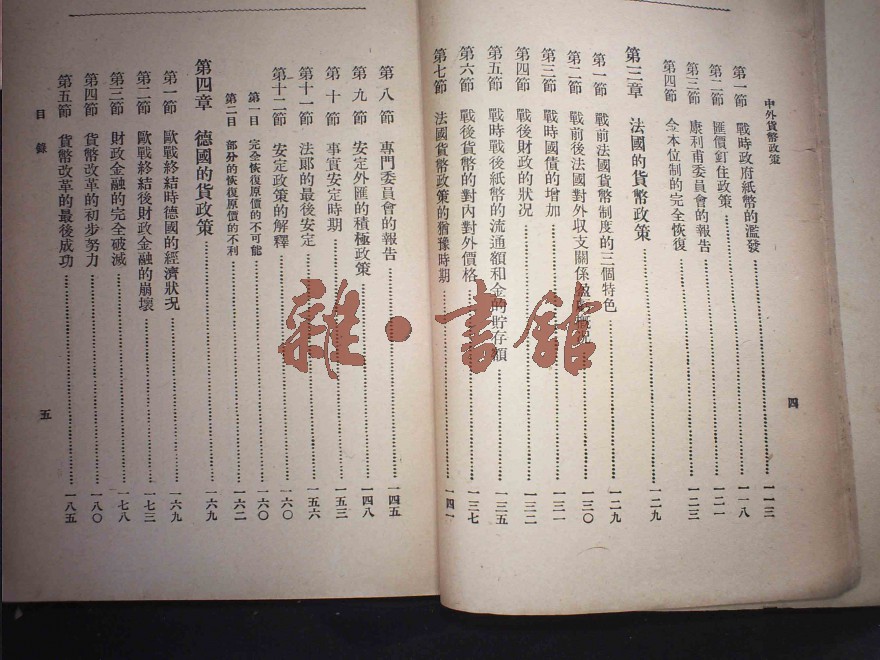 中外貨幣政策
四
第一節 戰時政府紙幣的濫發 一一三
第二節 匯價釘住政策 一一八
第三節 康利甫委員會的報告 一二一
第四節 金本位制的完全恢復 一二三
第三章 法國的貨幣政策 一二九
第一節 戰前法國貨幣制度的三個特色 一二九
第二節 戰前後法國對外收支關係 概況 一三〇
第三節 戰時國債的增加 一三一
第四節 戰後財政的狀況 一三二
第五節 戰時戰後紙幣的流通額和金的貯存額 一三五
第六節 戰後貨幣的對內對外價格 一三七
第七節 法國貨幣政策的猶豫時期 一四一
第八節 專門委員會的報告 一四五
第九節 安定外匯的積極政策 一四八
第十節 事實安定時期 一五三
第十一節 法郎的最後安定 一五六
第十二節 安定政策的解釋 一六〇
第一目 完全恢復原價的不可能 一六〇
第二目 部分的恢復原價的不利 一六二
第四章 德國的貨幣政策 一六九
第一節 歐戰終結時德國的經濟狀況 一六九
第二節 歐戰終結後財政金融的崩壞 一七三
第三節 財政金融的完全破滅 一七八
第四節 貨幣改革的初步努力 一八〇
第五節 貨幣改革的最後成功 一八五
目錄
五
雜·書館